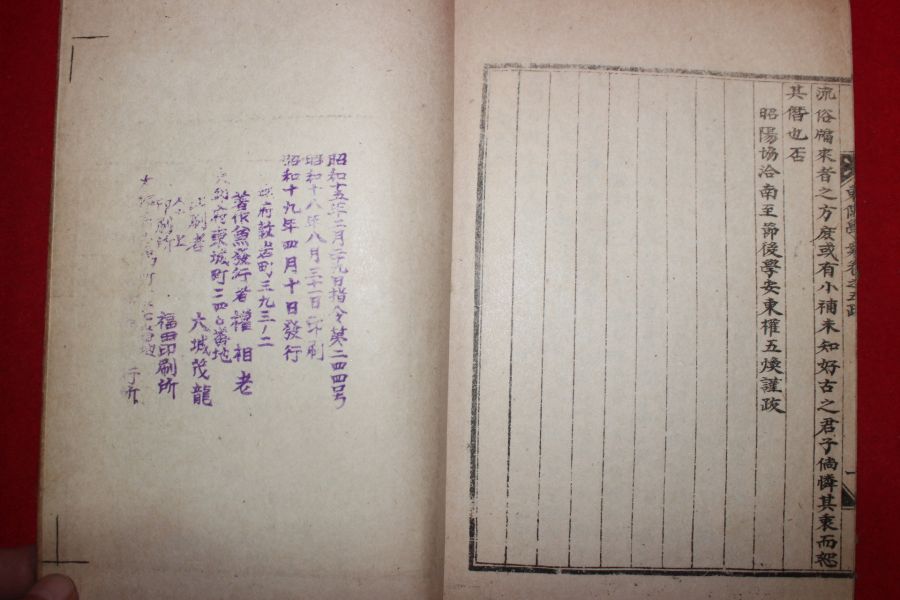 流俗牖來者之方庶或有小補未知好古之君子倘憐其衷而恕
其僭也否
昭陽協洽南至節後學安東權五煥謹跋
昭和十五年二月二九日指令第二四四号
昭和十八年八月三十一日印刷
昭和十九年四月十日發行
府敦岩町三九三ノ二
著作兼發行者 權相老
府東城町二四七番地
印刷者 六城茂龍
印刷所 福田印刷所